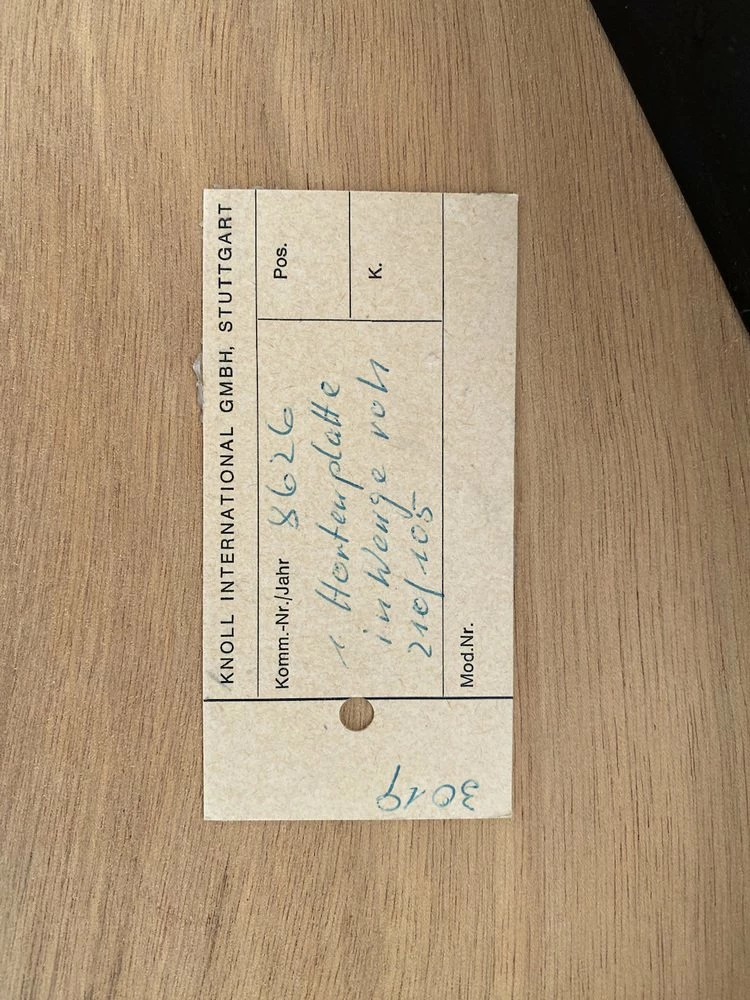 KNOLL INTERNATIONAL GMBH, STUTTGART
Komm.-Nr./Jahr 8626
Pos.
K.
1 Hortenplatte
in Wenge roh
210/105
Mod.Nr.
3019